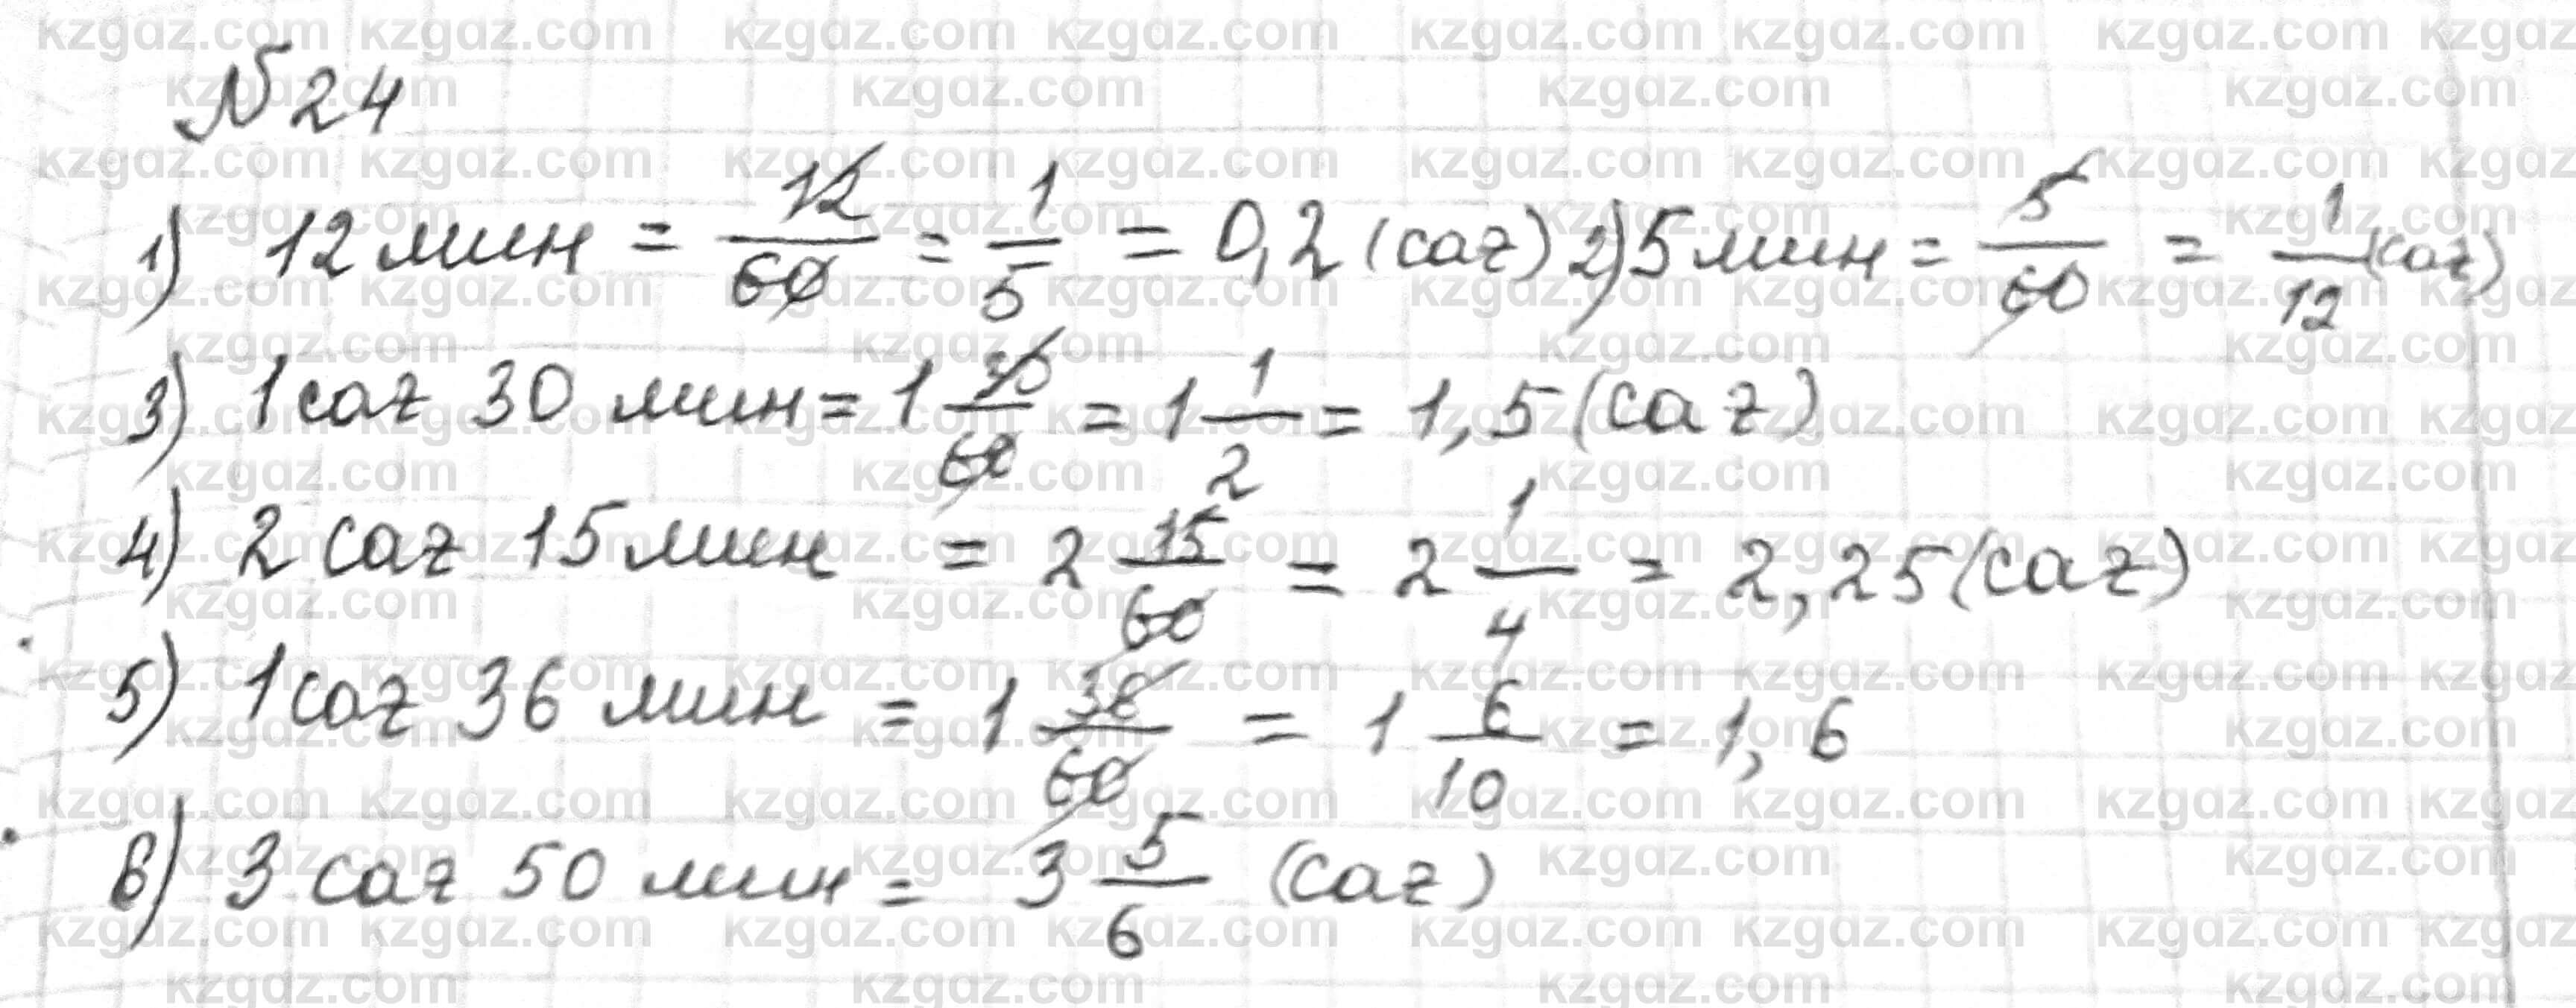 №24
1) 12 мин = 12/60 = 1/5 = 0,2 (сағ) 2) 5 мин = 5/60 = 1/12 (сағ)
3) 1 сағ 30 мин = 1 30/60 = 1 1/2 = 1,5 (сағ)
4) 2 сағ 15 мин = 2 15/60 = 2 1/4 = 2,25 (сағ)
5) 1 сағ 36 мин = 1 36/60 = 1 6/10 = 1,6
6) 3 сағ 50 мин = 3 5/6 (сағ)
kzgaz.com